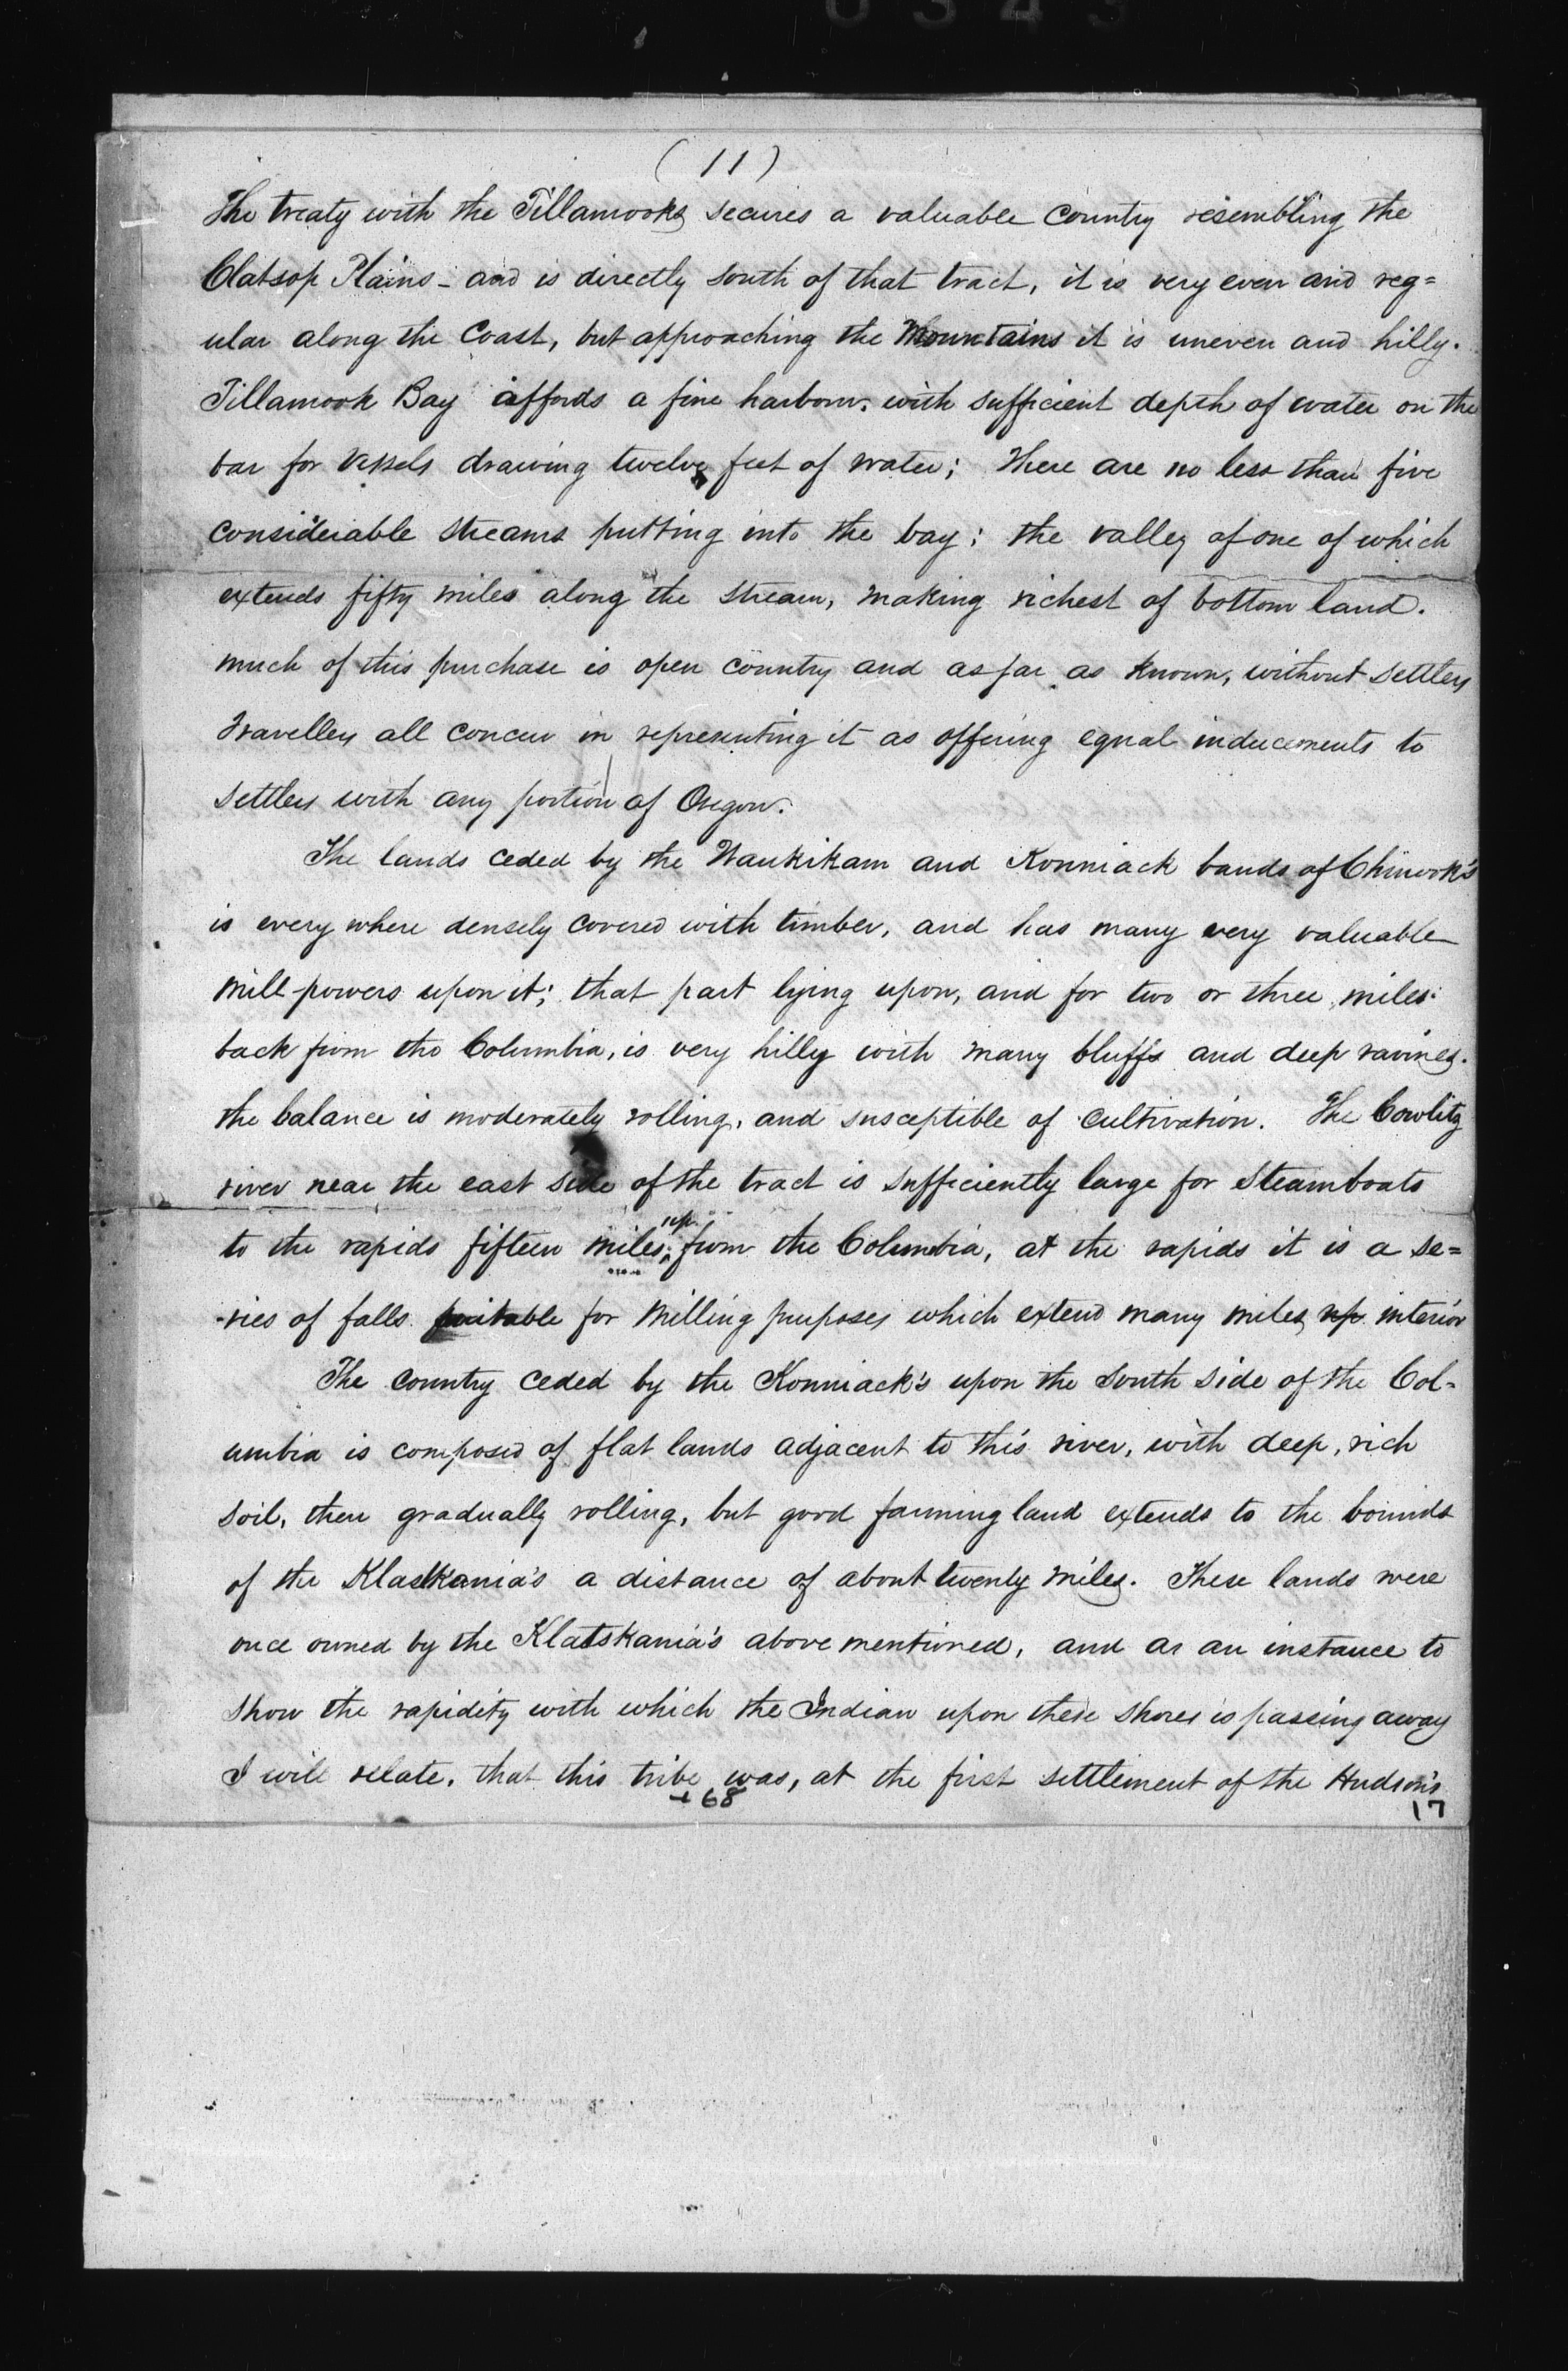 0343
(11)
The treaty with the Tillamooks secures a valuable country resembling the
Clatsop Plains - and is directly south of that tract, it is very even and reg=
ular along the Coast, but approaching the Mountains it is uneven and hilly.
Tillamook Bay affords a fine harbour. with sufficient depth of water on the
bar for vessels drawing twelve feet of water; There are no less than five
considerable streams putting into the bay; the valley of one of which
extends fifty miles along the stream, making richest of bottom land.
much of this purchase is open country and as far as known, without settlers
travellers all concur in representing it as offering equal inducements to
settlers with any portion of Oregon.
The lands ceded by the Waukikam and Konniack bands of Chinook's
is every where densely covered with timber, and has many very valuable
mill-powers upon it; that part lying upon, and for two or three miles
back from the Columbia, is very hilly with many bluffs and deep ravines.
the balance is moderately rolling, and susceptible of cultivation. The Cowlitz
river near the east side of the tract is sufficiently large for Steamboats
to the rapids fifteen miles up from the Columbia, at the rapids it is a se=
ries of falls suitable for Milling purposes which extend many miles up interior
The country ceded by the Konniack's upon the South side of the Col-
umbia is composed of flat lands adjacent to this river, with deep, rich
soil, then gradually rolling, but good farming land extends to the bounds
of the Klaskania's a distance of about twenty miles. These lands were
once owned by the Klatskania's above mentioned, and as an instance to
show the rapidity with which the Indian upon these shores is passing away
I will relate, that this tribe was, at the first settlement of the Hudson's
+68
17